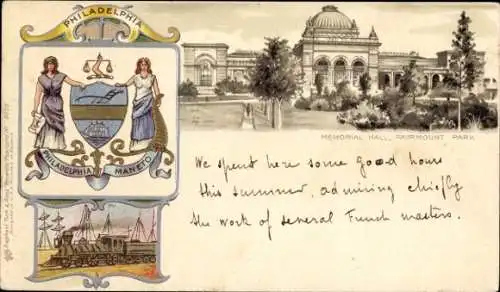 PHILADELPHIA
PHILADELPHIA MANETO
MEMORIAL HALL, FAIRMOUNT PARK
We spent here some good hours
this summer, admiring chiefly
the work of several French masters.